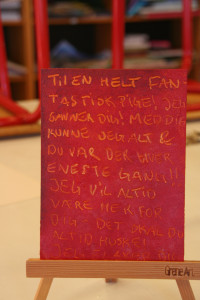 TIL EN HELT FAN-
TASTISK PIGE! JEG
SAVNER DIG! MED DIG
KUNNE JEG ALT &
DU VAR DER HVER
ENESTE GANG!!!
JEG VIL ALTID
VÆRE HER FOR
DIG. DET SKAL DU
ALTID HUSKE!